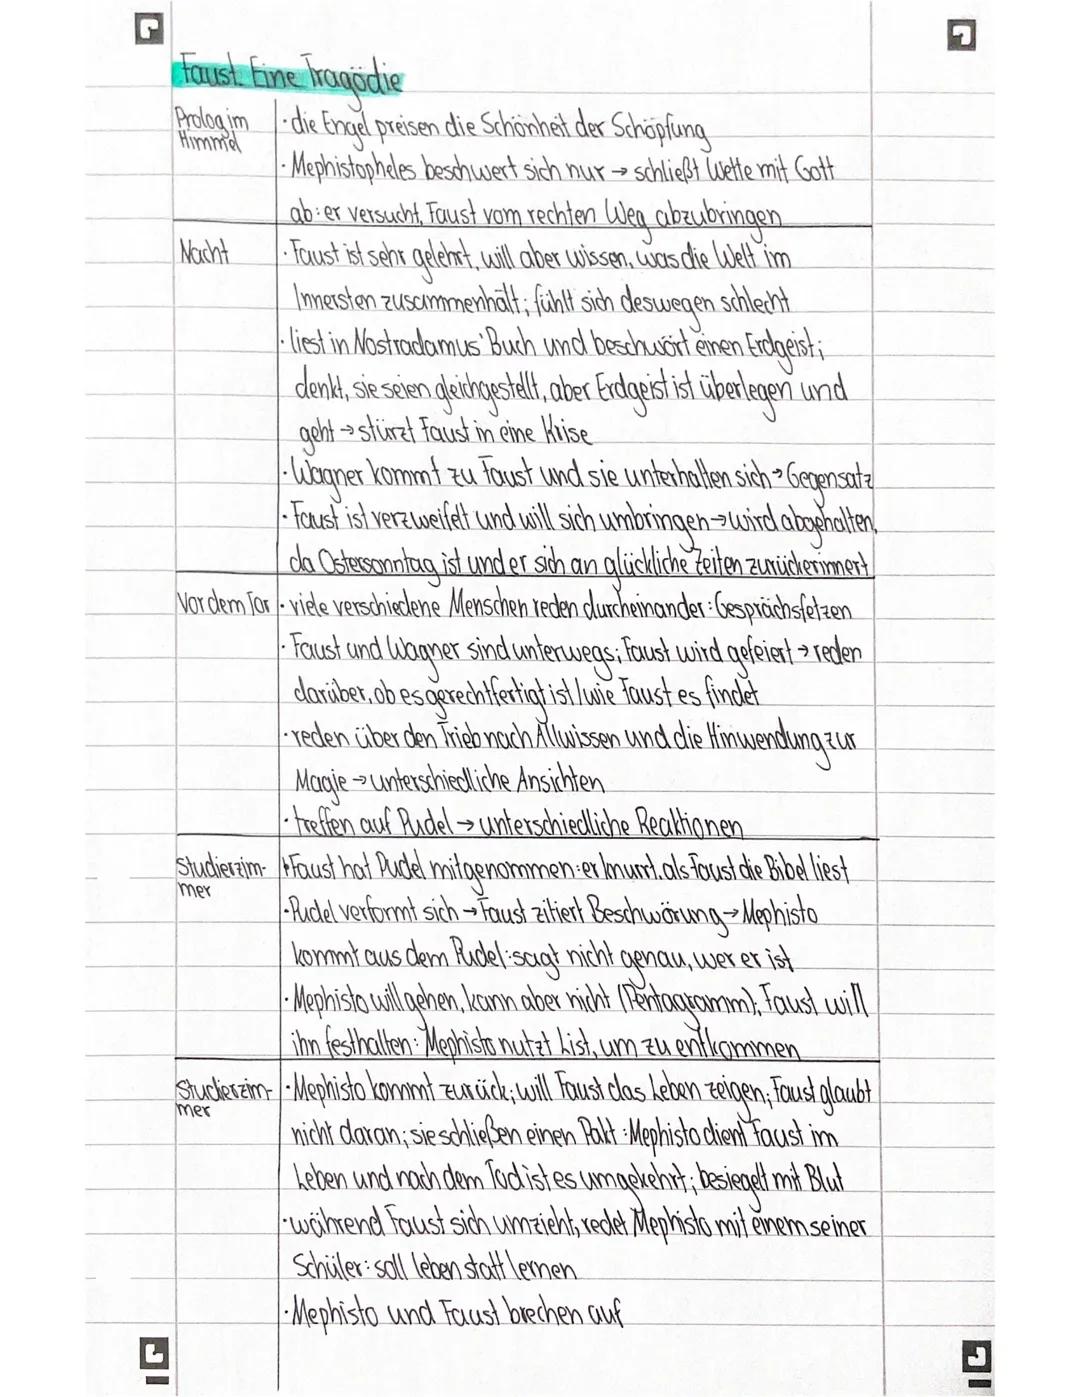 Faust. Eine Tragödie
Prolog im
Himmel
· die Engel preisen die Schönheit der Schöpfung
· Mephistopheles beschwert sich nur → schließt Wette mit Gott
ab: er versucht, Faust vom rechten Weg abzubringen
Nacht
· Faust ist sehr gelehrt, will aber wissen, was die Welt im
Innersten zusammenhält; fühlt sich deswegen schlecht
· liest in Nostradamus' Buch und beschwört einen Erdgeist;
denkt, sie seien gleichgestellt, aber Erdgeist ist überlegen und
geht → stürzt Faust in eine Krise
· Wagner kommt zu Faust und sie unterhalten sich → Gegensatz
· Faust ist verzweifelt und will sich umbringen → wird abgehalten,
da Ostersonntag ist und er sich an glückliche Zeiten zurückerinnert
Vor dem Tor
· viele verschiedene Menschen reden durcheinander: Gesprächsfetzen
· Faust und Wagner sind unterwegs; Faust wird gefeiert → reden
darüber, ob es gerechtfertigt ist / wie Faust es findet
· reden über den Trieb nach Allwissen und die Hinwendung zur
Magie → unterschiedliche Ansichten
· treffen auf Pudel → unterschiedliche Reaktionen
Studierzim-
mer
· Faust hat Pudel mitgenommen: er knurrt, als Faust die Bibel liest
· Pudel verformt sich → Faust zitiert Beschwörung → Mephisto
kommt aus dem Pudel: sagt nicht genau, wer er ist
· Mephisto will gehen, kann aber nicht (Pentagramm); Faust will
ihn festhalten: Mephisto nutzt List, um zu entkommen
Studierzim-
mer
· Mephisto kommt zurück; will Faust das Leben zeigen; Faust glaubt
nicht daran; sie schließen einen Pakt: Mephisto dient Faust im
Leben und nach dem Tod ist es umgekehrt; besiegelt mit Blut
· während Faust sich umzieht, redet Mephisto mit einem seiner
Schüler: soll leben statt lernen
· Mephisto und Faust brechen auf